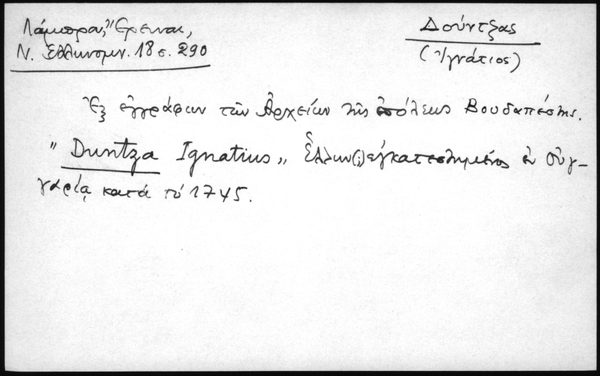 Λάμπρου, Ἔρευναι,
Ν. Ἑλληνομν. 18 σ. 290
Δούντζας
(Ἰγνάτιος)
Ἐξ ἐγγράφων τῶν Ἀρχείων τῆς πόλεως Βουδαπέστης.
"Duntza Ignatius„ Ἕλλην(;) ἐγκατεστημένος ἐν Οὑγ-
γαρίᾳ κατὰ τὸ 1745.